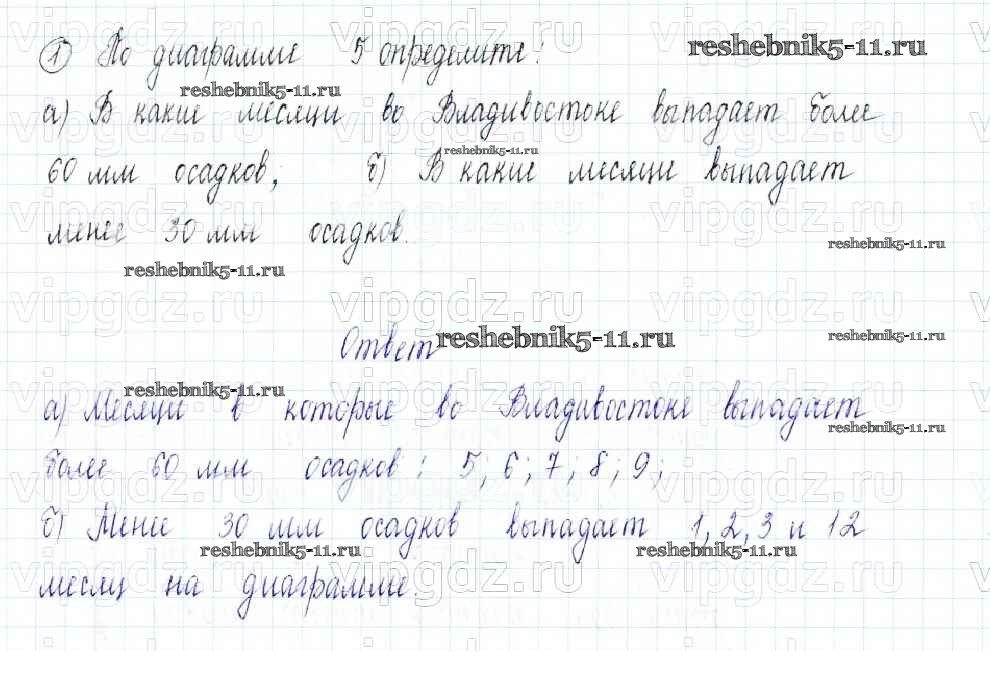 ① По диаграмме 5 определите:
reshebnik5-11.ru
reshebnik5-11.ru
а) В какие месяцы во Владивостоке выпадает более
reshebnik5-11.ru
60 мм осадков; б) В какие месяцы выпадает
менее 30 мм осадков.
reshebnik5-11.ru
reshebnik5-11.ru
Ответ
reshebnik5-11.ru
reshebnik5-11.ru
reshebnik5-11.ru
а) Месяцы в которые во Владивостоке выпадает
reshebnik5-11.ru
более 60 мм осадков: 5; 6; 7; 8; 9;
б) Менее 30 мм осадков выпадает 1, 2, 3 и 12
reshebnik5-11.ru
reshebnik5-11.ru
месяц на диаграмме.
vipgdz.ru vipgdz.ru vipgdz.ru